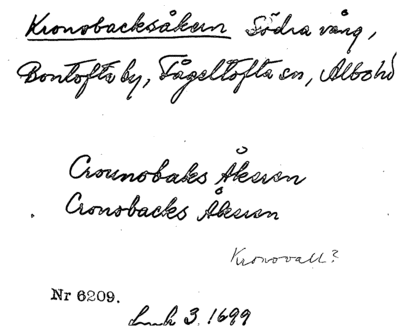 Kronobacksåkern Södra vång,
Bontofta by, Fågeltofta sn, Albo hd
Crounobaks Åkeren
Cronobacks Åkeren
Kronovall?
Nr 6209.
3. 1699